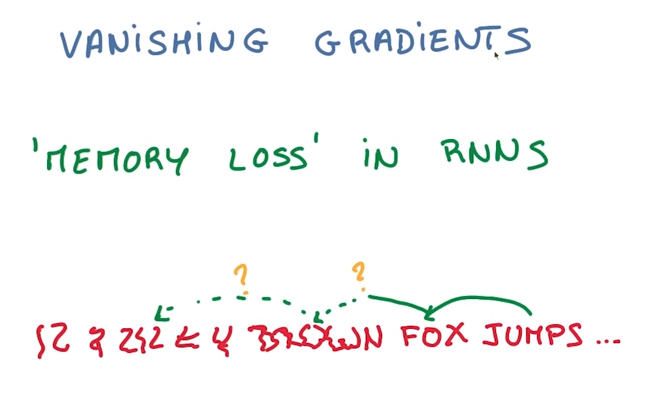 VANiSHiNG GRADiENTS
'MEMORY LOSS' iN RNNS
? ?
FOX JUMPS ...